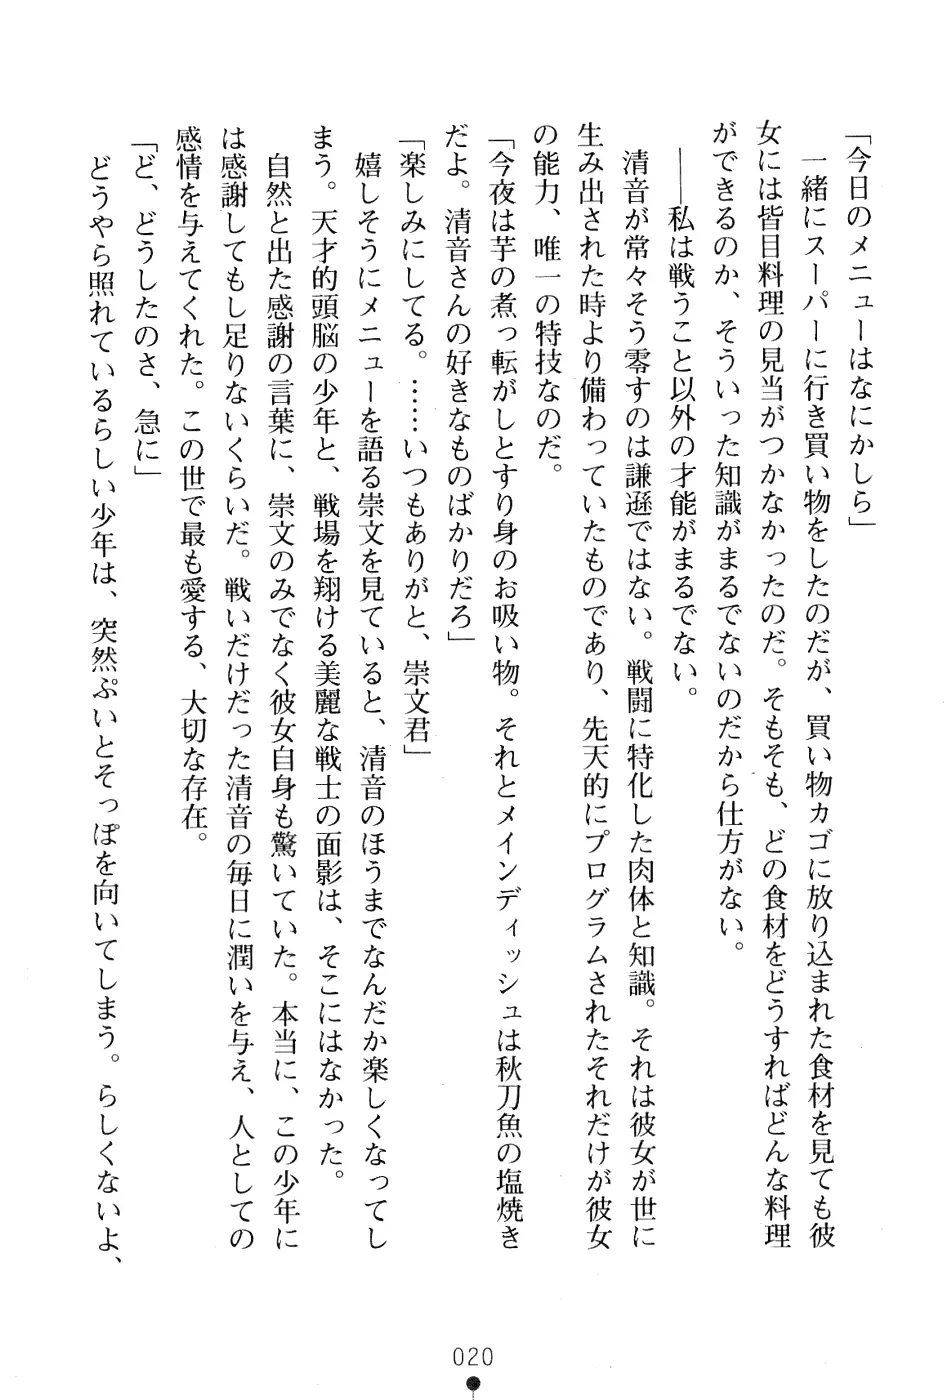 「今日のメニューはなにかしら」
　一緒にスーパーに行き買い物をしたのだが、買い物カゴに放り込まれた食材を見ても彼
女には皆目料理の見当がつかなかったのだ。そもそも、どの食材をどうすればどんな料理
ができるのか、そういった知識がまるでないのだから仕方がない。
　――私は戦うこと以外の才能がまるでない。
　清音が常々そう零すのは謙遜ではない。戦闘に特化した肉体と知識。それは彼女が世に
生み出された時より備わっていたものであり、先天的にプログラムされたそれだけが彼女
の能力、唯一の特技なのだ。
「今夜は芋の煮っ転がしとすり身のお吸い物。それとメインディッシュは秋刀魚の塩焼き
だよ。清音さんの好きなものばかりだろ」
「楽しみにしてる。……いつもありがと、崇文君」
　嬉しそうにメニューを語る崇文を見ていると、清音のほうまでなんだか楽しくなってし
まう。天才的頭脳の少年と、戦場を翔ける美麗な戦士の面影は、そこにはなかった。
　自然と出た感謝の言葉に、崇文のみでなく彼女自身も驚いていた。本当に、この少年に
は感謝してもし足りないくらいだ。戦いだけだった清音の毎日に潤いを与え、人としての
感情を与えてくれた。この世で最も愛する、大切な存在。
「ど、どうしたのさ、急に」
　どうやら照れているらしい少年は、突然ぷいとそっぽを向いてしまう。らしくないよ、
020